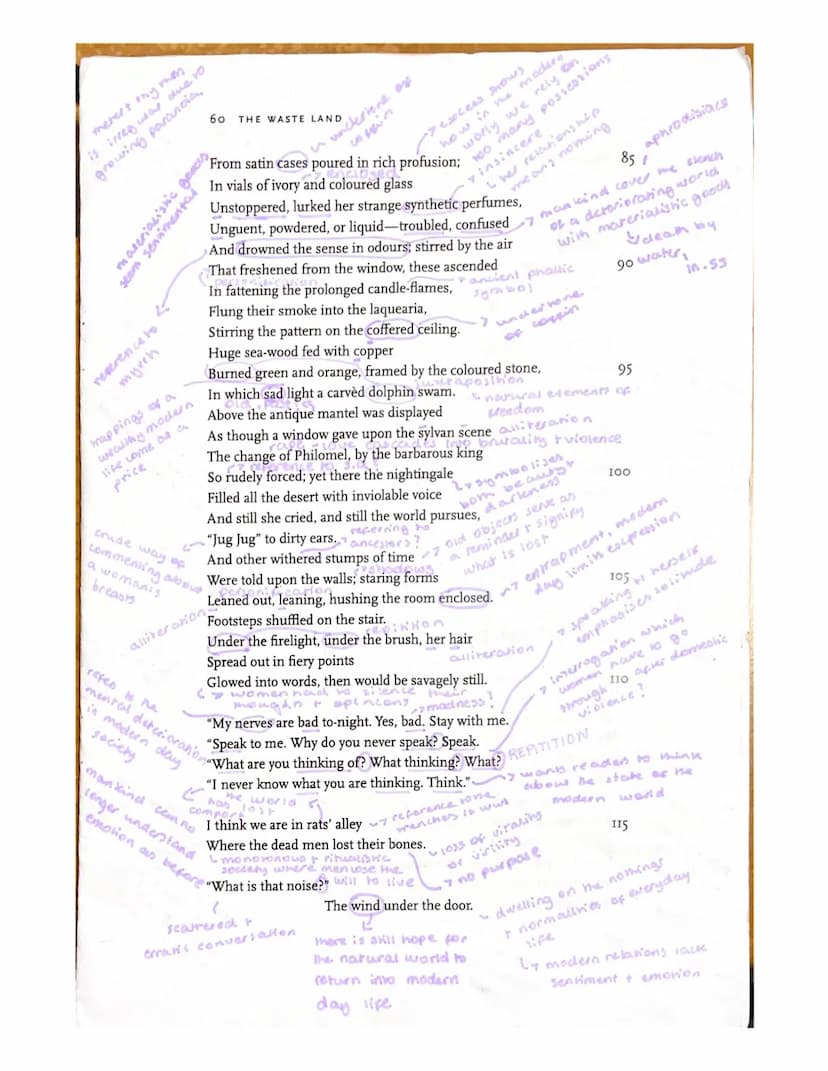 meter + rhymen
is irregular due to
growing paranoia
60 THE WASTE LAND
↳ undertone of
coffin
→ excess shows
how in the modern
world we rely on
too many possessions
→ insincere
↳ her relationship
means nothing
aphrodisiacs
From satin cases poured in rich profusion; 85
→ enclosed
In vials of ivory and coloured glass
Unstoppered, lurked her strange synthetic perfumes,
→ mankind cover the stench
of a deteriorating world
with materialistic goods
Unguent, powdered, or liquid—troubled, confused
materialistic goods
seem sentimental
And drowned the sense in odours; stirred by the air
↳ death by
water,
ln. 55
That freshened from the window, these ascended 90
personification
→ ancient phallic
symbol
In fattening the prolonged candle-flames,
Flung their smoke into the laquearia,
→ undertone
of coffin
Stirring the pattern on the coffered ceiling.
reference to
myrrh
Huge sea-wood fed with copper
Burned green and orange, framed by the coloured stone, 95
juxtaposition
In which sad light a carvèd dolphin swam.
↳ natural elements of
freedom
old,
Above the antique mantel was displayed
trappings of a
wealthy modern
life come at a
price
As though a window gave upon the sylvan scene
alliteration
rape - love cascades into brutality + violence
The change of Philomel, by the barbarous king
→ reference to
So rudely forced; yet there the nightingale 100
↳ symbolises
both beauty +
darkness
Filled all the desert with inviolable voice
And still she cried, and still the world pursues,
referring to
ancestors?
"Jug Jug" to dirty ears.
crude way of
commenting about
a woman's
breasts
And other withered stumps of time
→ old objects serve as
a reminder + signify
what is lost
→ shadows
Were told upon the walls; staring forms 105
→ entrapment, modern
day limit expression
personification
Leaned out, leaning, hushing the room enclosed.
alliteration
Footsteps shuffled on the stair.
repitition
Under the firelight, under the brush, her hair
alliteration
→ speaking to herself
emphasises solitude
Spread out in fiery points
Glowed into words, then would be savagely still. 110
↳ women had to silence their
thoughts + opinions
→ madness?
→ interrogation which
women have to go
through after domestic
violence?
refers to the
mental deterioration
in modern day
society
"My nerves are bad to-night. Yes, bad. Stay with me.
"Speak to me. Why do you never speak? Speak.
REPITITION
"What are you thinking of? What thinking? What?
"I never know what you are thinking. Think."
→ wants readers to think
about the state of the
modern world
mankind can no
longer understand
emotion as before
the world
has lost
I think we are in rats' alley 115
→ reference to the
trenches in WW1
Where the dead men lost their bones.
↳ loss of vitality
or virility
→ no purpose
↳ monotonous + ritualistic
society where men lose the
will to live
"What is that noise?"
scattered +
erratic conversation
The wind under the door.
there is still hope for
the natural world to
return into modern
day life
↳ dwelling on the nothings
+ normalities of everyday
life
↳ modern relations lack
sentiment + emotion